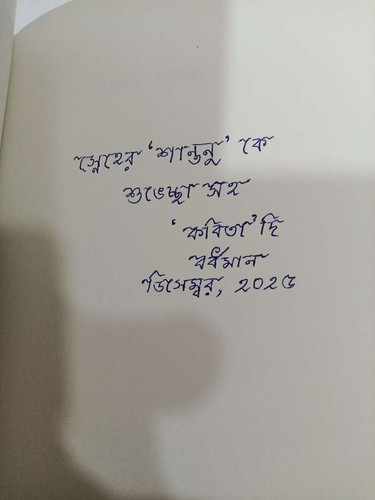 স্নেহের 'শান্তনু' কে
শুভেচ্ছা সহ
'কবিতা' দি
বর্ধমান
ডিসেম্বর, ২০২৫